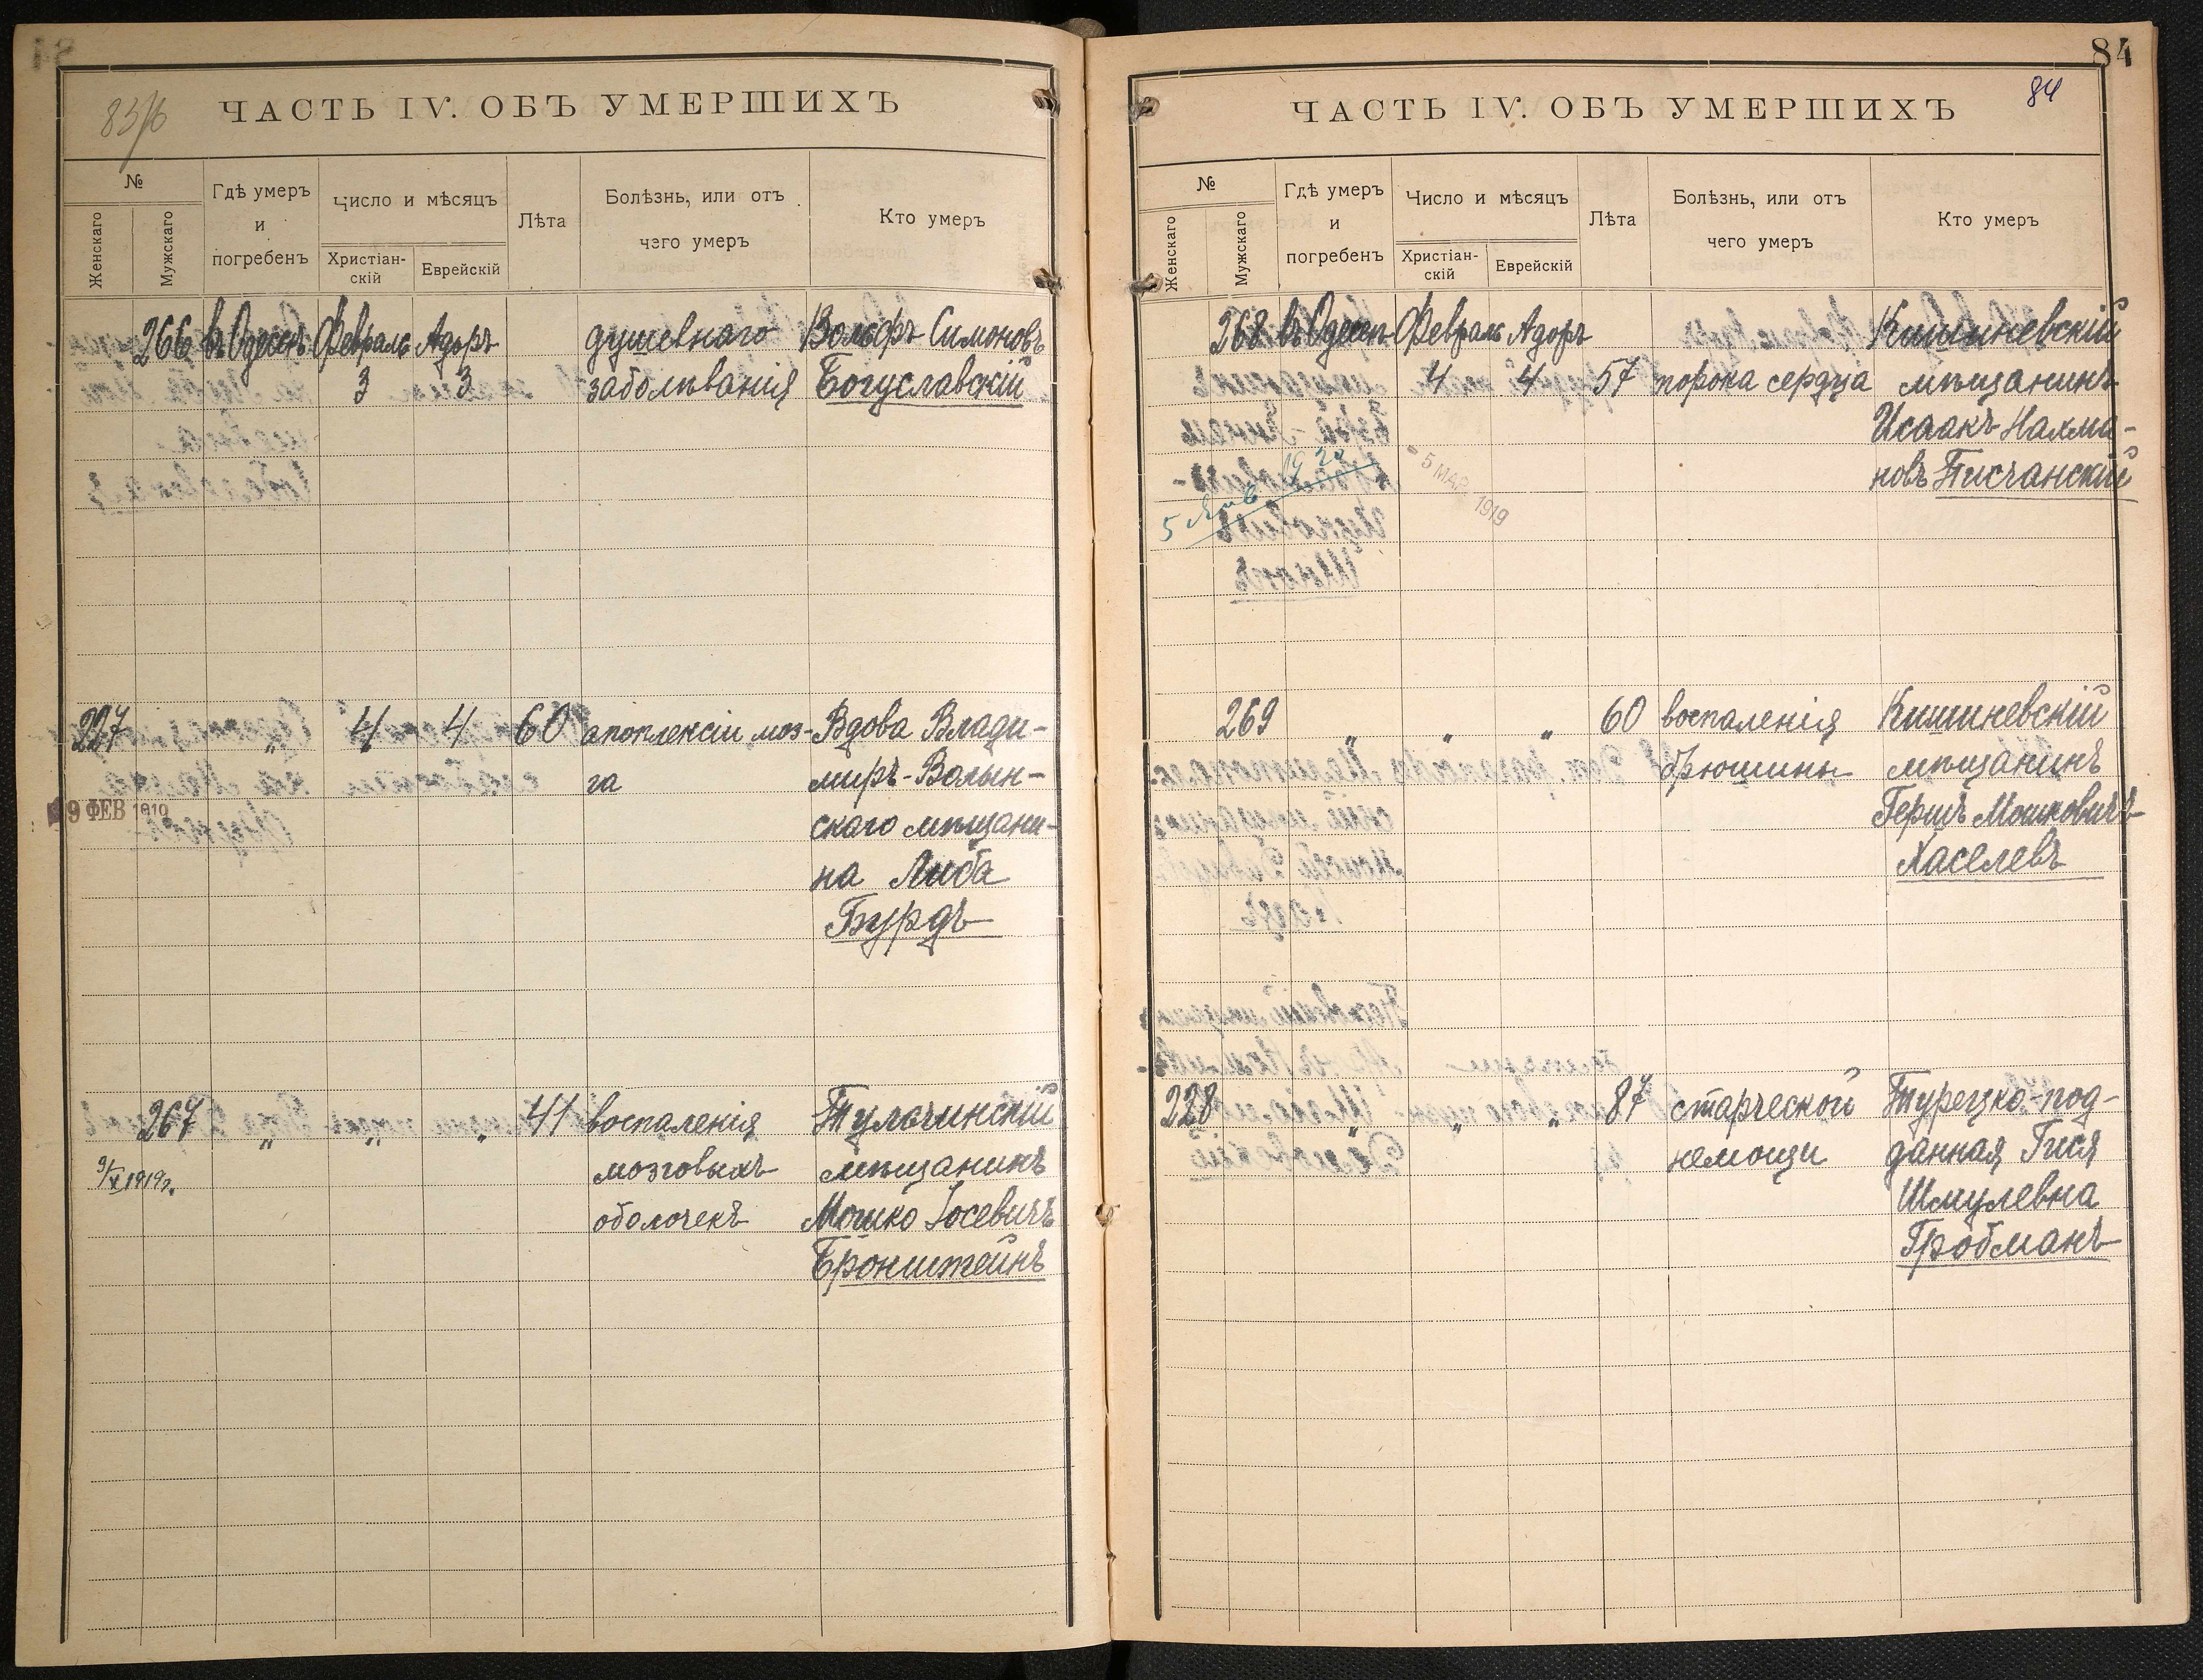 83/б
ЧАСТЬ IV. ОБЪ УМЕРШИХЪ
№
Женскаго
Мужскаго
Гдѣ умеръ
и
погребенъ
Число и мѣсяцъ
Христіан-
скій
Еврейскій
Лѣта
Болѣзнь, или отъ
чего умеръ
Кто умеръ
266 въ Одессѣ Февраль Адоръ душевнаго Вольфъ Симоновъ
3 3 заболѣванія Богуславскій
227 „ 4 4 60 апоплексіи моз- Вдова Влади-
га миръ-Волын-
9 ФЕВ 1919 скаго мѣщани-
на Либа
Бурдъ
267 „ „ „ 41 воспаленія Тульчинскій
9/X 1919г. мозговыхъ мѣщанинъ
оболочекъ Мошко Іосевичъ
Бронштейнъ
84
84
ЧАСТЬ IV. ОБЪ УМЕРШИХЪ
№
Женскаго
Мужскаго
Гдѣ умеръ
и
погребенъ
Число и мѣсяцъ
Христіан-
скій
Еврейскій
Лѣта
Болѣзнь, или отъ
чего умеръ
Кто умеръ
268 въ Одессѣ Февраль Адоръ Кишиневскій
4 4 57 порока сердца мѣщанинъ
Исаакъ Нахма-
новъ Писчанскій
5 Янв 1920
- 5 МАР 1919
269 „ „ „ 60 воспаленія Кишиневскій
брюшины мѣщанинъ
Гершъ Мошковичъ
Хаселевъ
228 „ „ „ 87 старческой Турецко-под-
немощи данная Гися
Шмулевна
Гробманъ